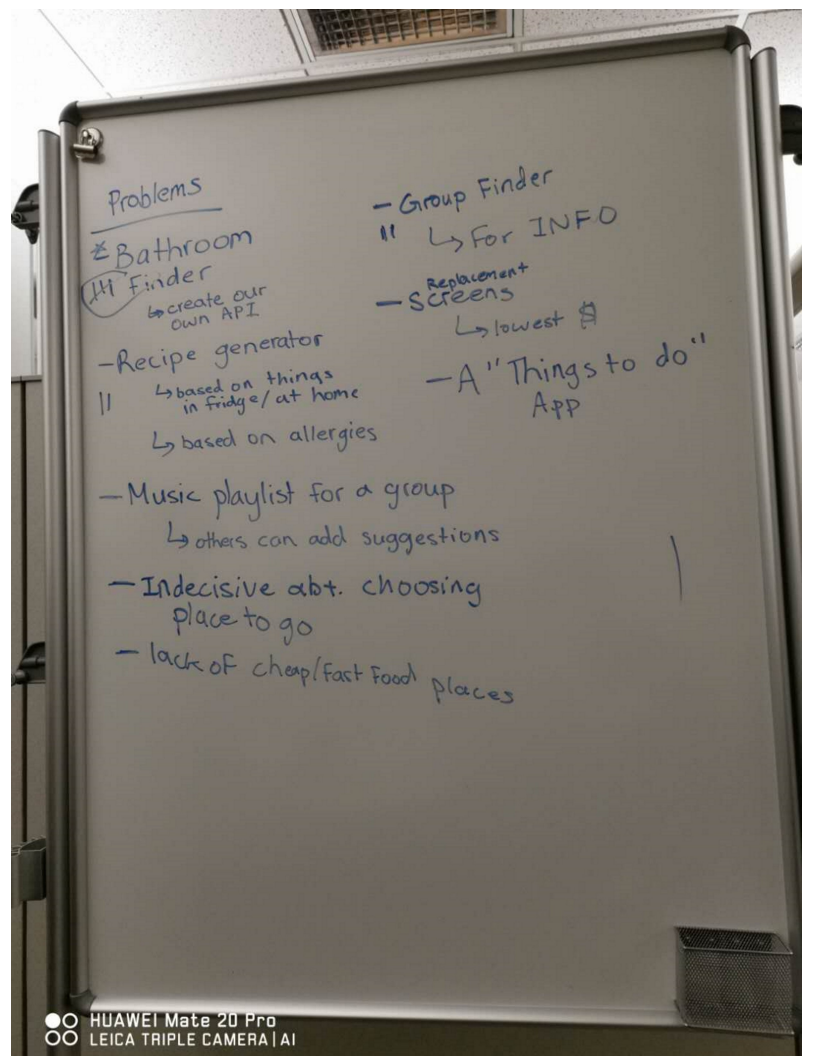 Problems
* Bathroom
Finder
↳ create our
own API
- Recipe generator
↳ based on things
in fridge/at home
↳ based on allergies
- Music playlist for a group
↳ others can add suggestions
- Indecisive abt. choosing
place to go
- lack of cheap/fast food places
- Group Finder
↳ For INFO
Replacement
- Screens
↳ lowest $
- A "Things to do"
App
HUAWEI Mate 20 Pro
LEICA TRIPLE CAMERA | AI